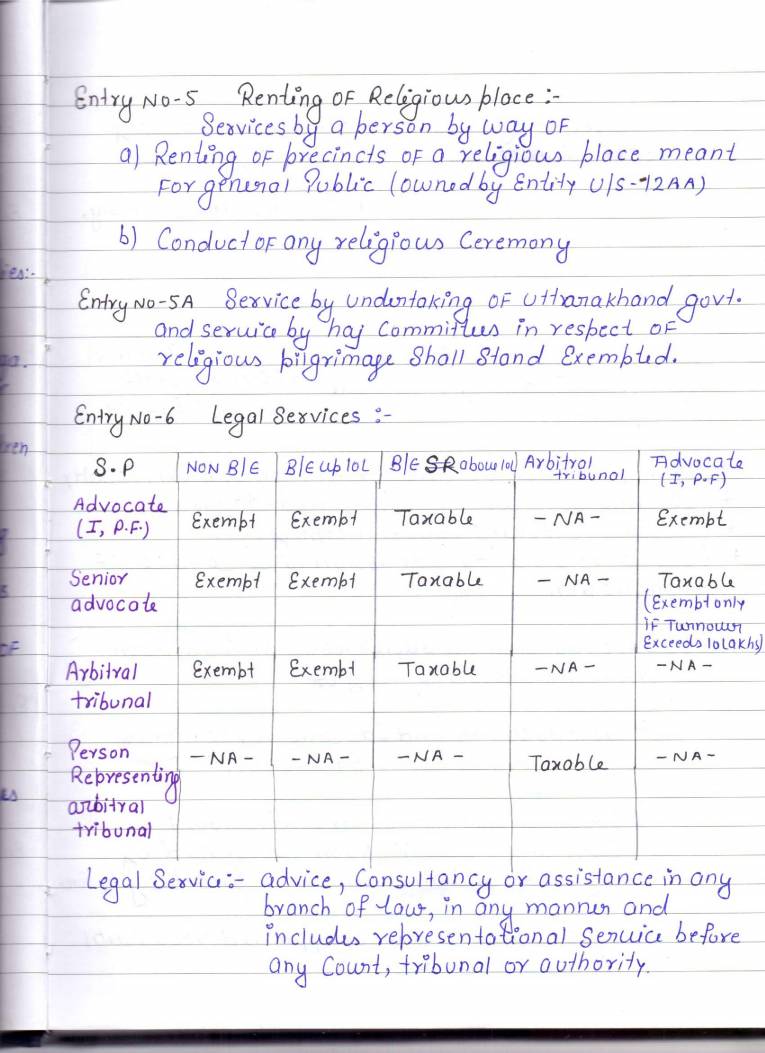 Entry No-5 Renting OF Religious place :-
Services by a person by way OF
a) Renting OF precincts OF a religious place meant
For general Public (owned by Entity U/S-12AA)
b) Conduct OF any religious Ceremony
Entry No-5A Service by undertaking OF uttarakhand govt.
and service by haj Committees in respect OF
religious pilgrimage Shall Stand Exempted.
Entry No-6 Legal Services :-
S.P | NON B/E | B/E up 10L | B/E above 10L | Arbitral tribunal | Advocate (I, P.F)
Advocate (I, P.F.) | Exempt | Exempt | Taxable | - NA - | Exempt
Senior advocate | Exempt | Exempt | Taxable | - NA - | Taxable (Exempt only if Turnover Exceeds 10 Lakhs)
Arbitral tribunal | Exempt | Exempt | Taxable | - NA - | - NA -
Person Representing arbitral tribunal | - NA - | - NA - | - NA - | Taxable | - NA -
Legal Service :- advice, Consultancy or assistance in any
branch of law, in any manner and
includes representational Service before
any Court, tribunal or authority.